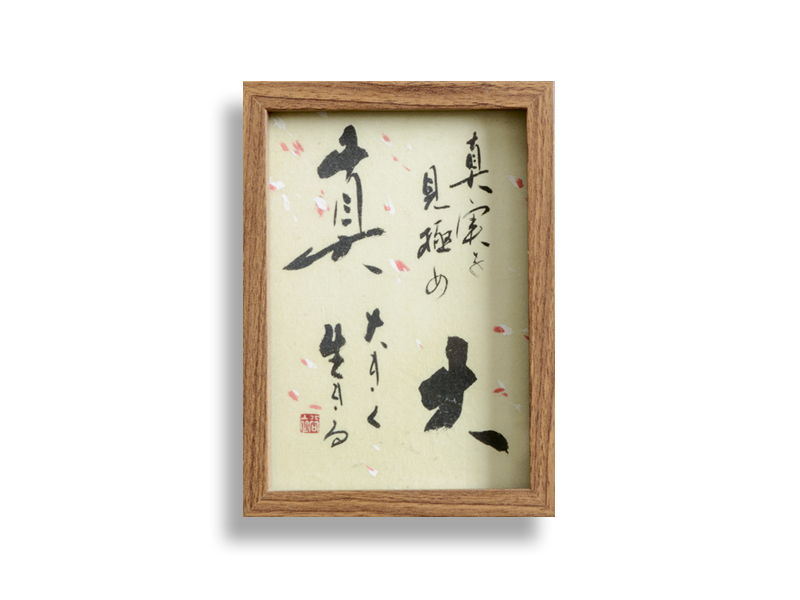 真実を
見極め
大
真
大きく
生きる